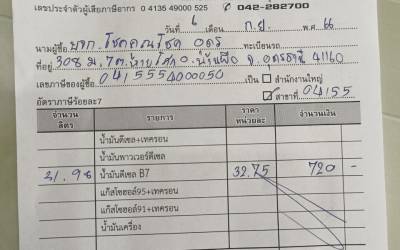 เลขประจำตัวผู้เสียภาษีอากร 0 4135 49000 525 042-282700
วันที่ 6 เดือน ก.ย. พ.ศ. 66
นามผู้ซื้อ บจก. โชคคูณโชค อุดร ทะเบียนรถ
ที่อยู่ 308 ม.7 ต. อ. บ้านผือ จ. อุดรธานี 41160
เลขภาษีของผู้ซื้อ 0415554000050 เป็น สำนักงานใหญ่
อัตราภาษีร้อยละ7 สาขาที่ 04155
จำนวน ลิตร รายการ ราคา หน่วยละ จำนวนเงิน
น้ำมันดีเซล+เทครอน
น้ำมันพาวเวอร์ดีเซล
21.98 น้ำมันดีเซล B7 32.75 720 -
แก๊สโซฮอล์95+เทครอน
แก๊สโซฮอล์91+เทครอน
น้ำมันเครื่อง